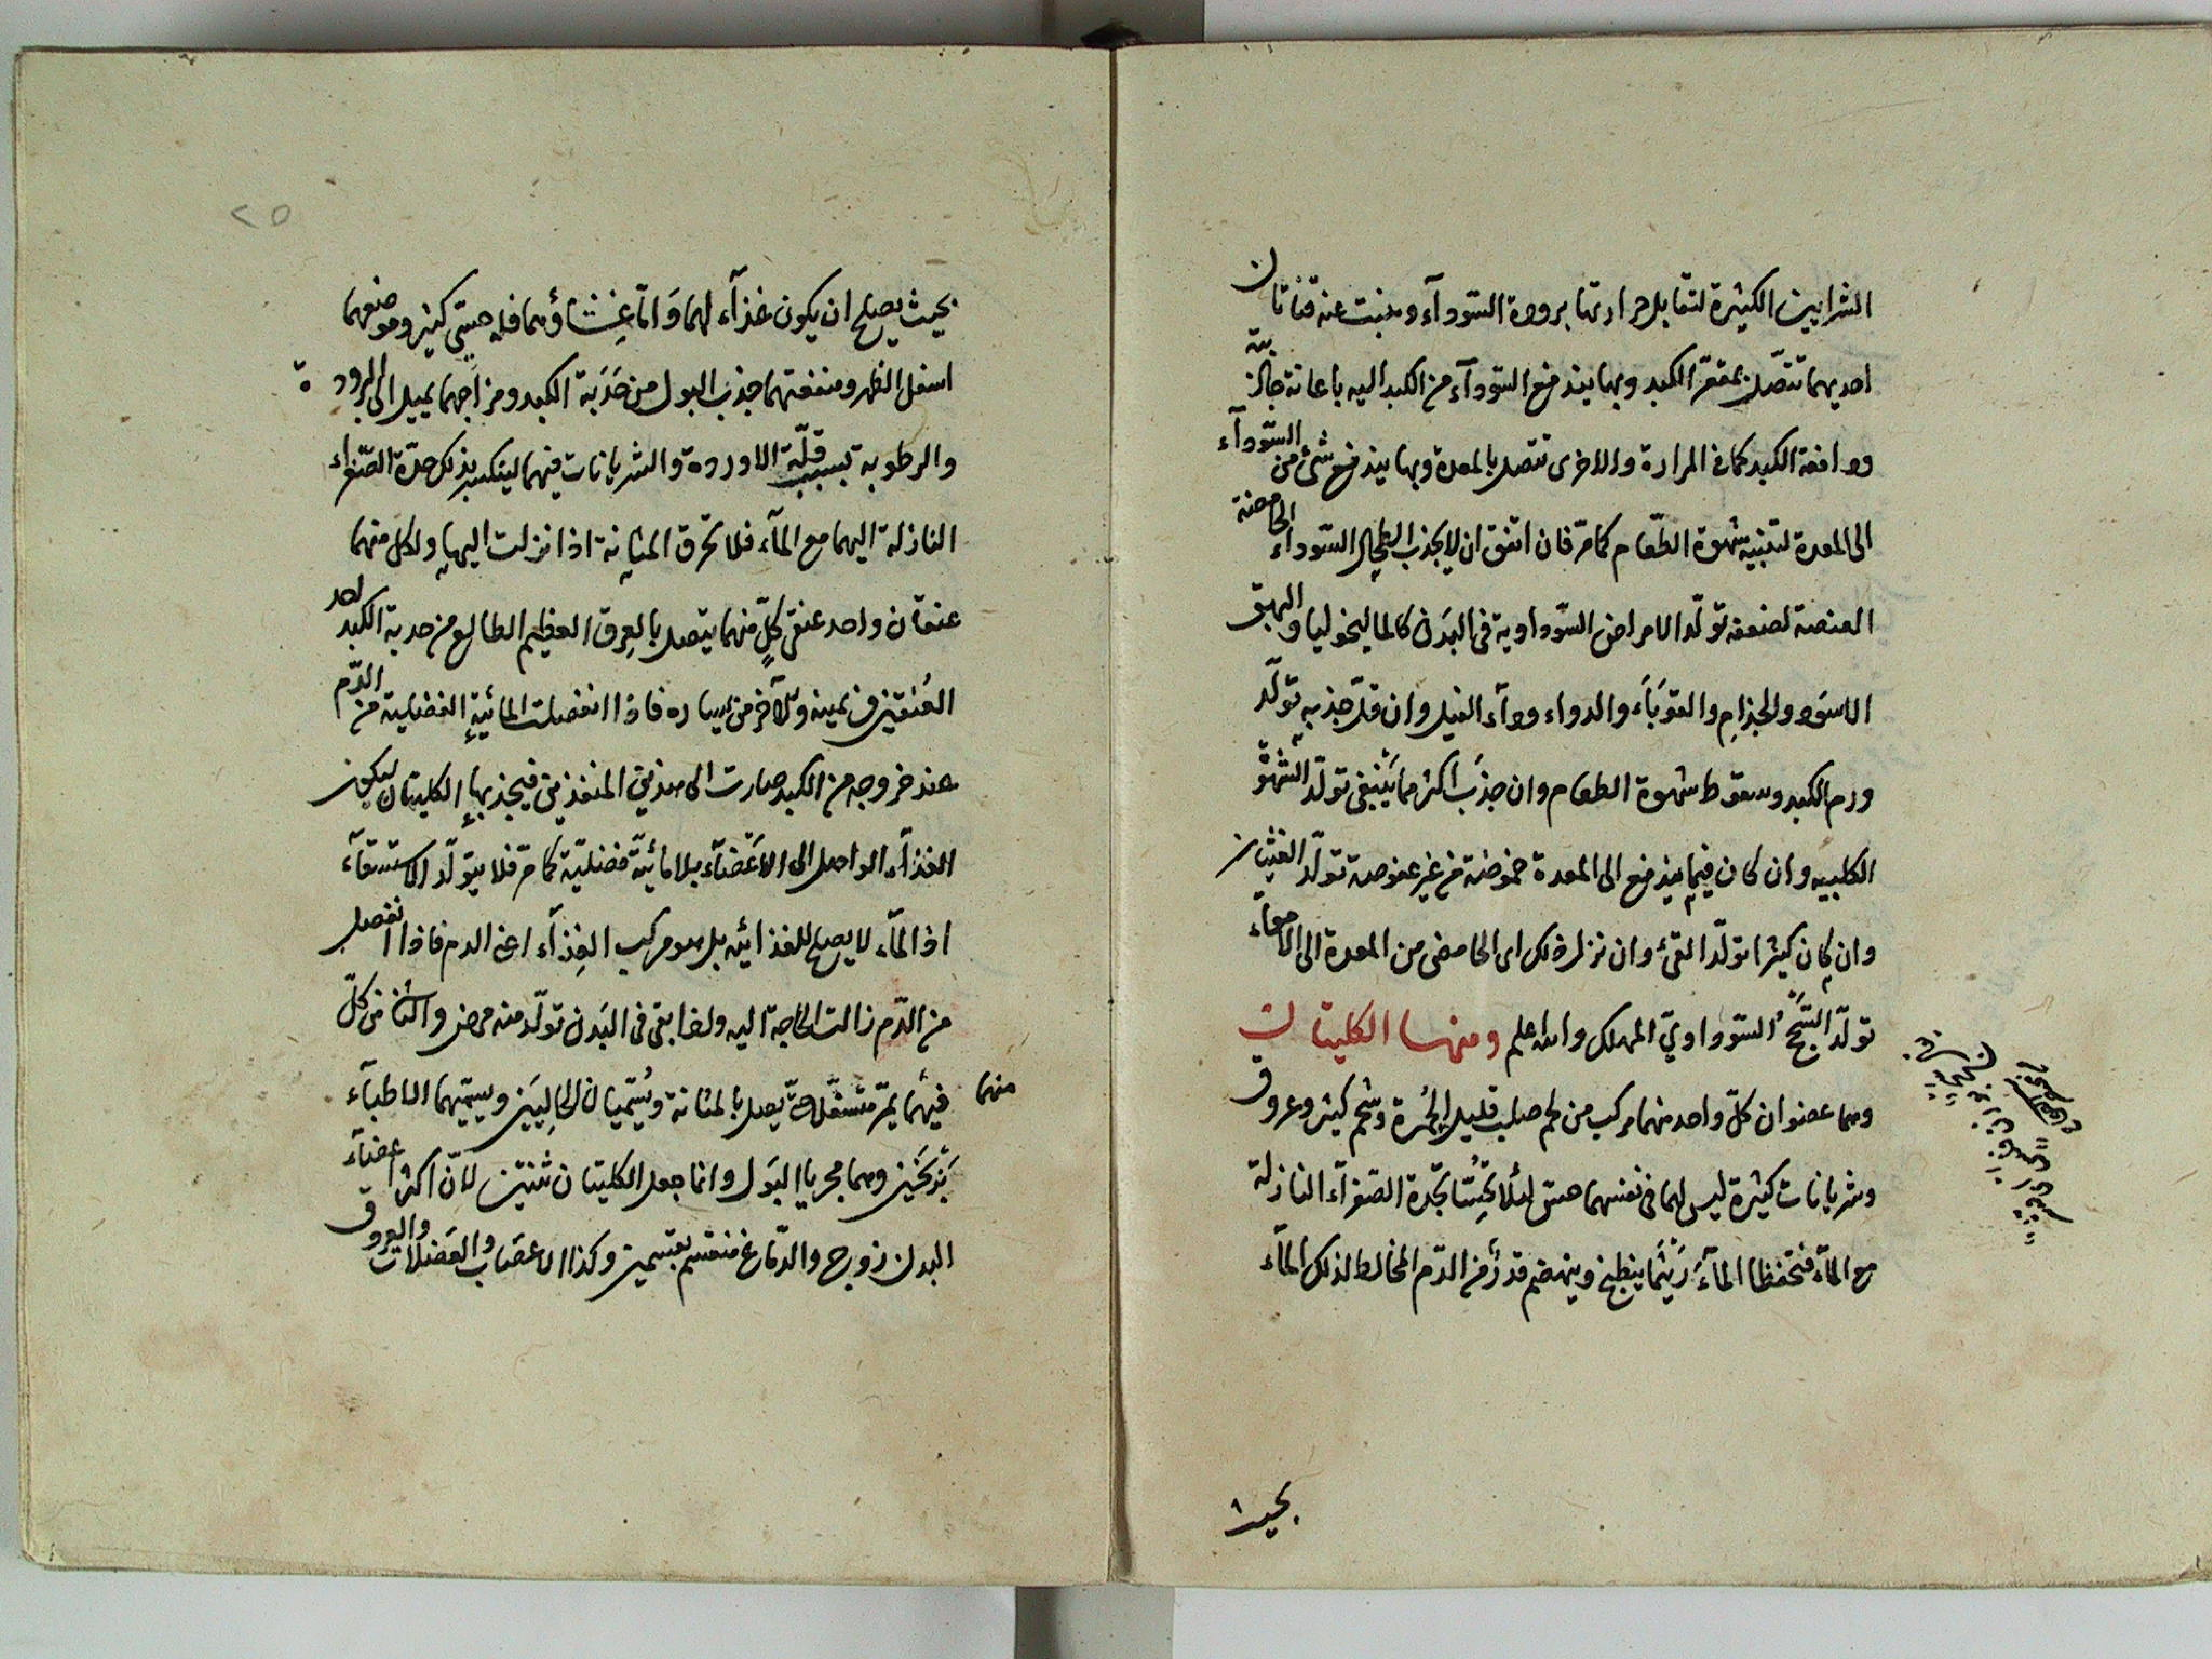 الشرايين الكثيرة لتقابل حرارتها برودة السّودآء وينبت عنه قناتان
احديهما تتصّل بمقعّر الكبد وبها يندفع السّودآء من الكبد اليه باعانة جاذبيّة
ودافعة الكبد كما فى المرارة والاخرى تتصل بالمعدة وبها يندفع شئ من السّودآء
الى المعدة لتنبيه شهوة الطّعام كما مرّ فان اتفق ان لا يجذب الطحال السّوداء الحامضة
العفصة لضعفه تولّد الامراض السّوداوية فى البدن كالماليخوليا والبهق
الاسود والجذام والقوبآء والدواء ودآء الفيل وان قلّ جذبه تولّد
ورم الكبد وسقوط شهوة الطعام وان جذب اكثر مما ينبغى تولّد الشّهوة
الكلبيه وان كان فيما يندفع الى المعدة حموضة من غير عفوصة تولّد الغثيان
وان كان كثيرا تولّد القئ وان نزل ذلك اى الحامض من المعدة الى الامعآء
تولّد السّحج السّوداويّ المهلك والله اعلم ومنها الكليتان
وهما عضوان كلّ واحد منهما مركب من لحم صلب قليل الحُمرة وشحم كثير وعروق
وشريانات كثيرة ليس لهما فى نفسهما حس لئلا تحسّا بحدّة الصّفرآء النازلة
مع المآء فتحفظا المآء ريثما ينطبخ وينهضم قدرٌ من الدّم المخالط لذلك المآء
بحيث
بحيث يصلح ان يكون غذآء لهما وامّا غشاؤهما فله حسّ كثير وموضعهما
اسفل الظهر ومنفعتهما جذب البول من حَدَبة الكبد ومزاجهما يميل الى البرودة
والرطوبه بسبب قلّة الاوردة والشريانات فيهما لينكسر بذلك حدّة الصّفراء
النازلة اليهما مع المآء فلا تحرق المثانة اذا نزلت اليها ولكل منهما
عنقان واحد عنقى كلٍّ منهما يتصل بالعرق العظيم الطالع من حدبة الكبد احد
العُنقين من يمينه والآخر من يساره فاذا انفصلت المائية الفضلية من الدّم
عند خروجه من الكبد صارت الى هذين المنفذين فيجذبها الكليتان ليكون
الغذآء الواصل الى الاعضآء بلا مائيّة فضليّة كما مرّ فلا يتولّد الاستسقآء
اذ المآء لا يصلح للغذائيه بل هو مركب الغذآء اعنى الدم فاذا انفصل
من الدّم زالت الحاجة اليه ولهذا بقى فى البدن تولّد منه مرض والثانى من كلّ
منهما فيهما يمرّ متسفّلا حتّى يصل بالمثانة ويُسمّيان الحالِبَين ويسمّيهما الاطبآء
بَرْبَخَين وهما مجريا البَول وانما جعل الكليتان ثنتين لانّ اكثر اعضآء
البدن زوج والدّماغ منقسم بقسمين وكذا الاعصاب والعضلات والعروق